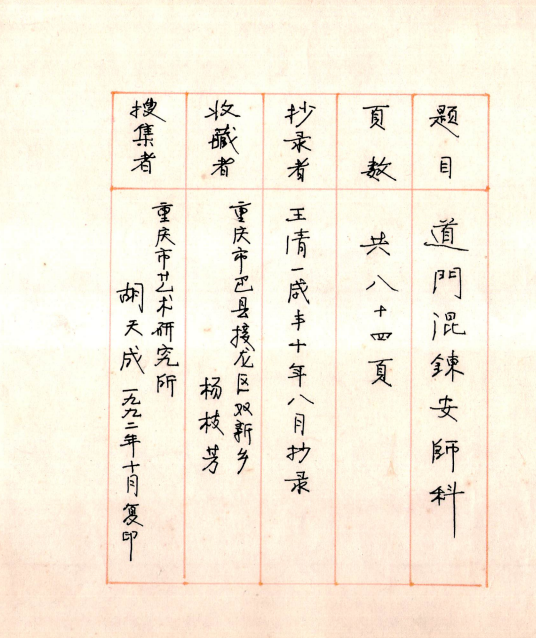 题目
道門混鍊安師科
頁数
共八十四頁
抄录者
王清一咸丰十年八月抄录
收藏者
重庆市巴县接龙区双新乡
杨枝芳
搜集者
重庆市艺术研究所
胡天成 一九九二年十月复印